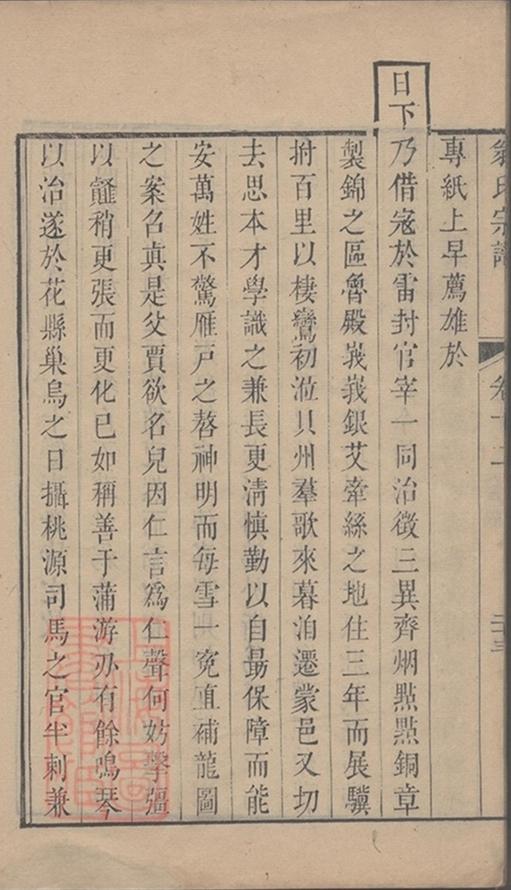 翁氏宗譜 卷十二
專紙上早薦雄於
日下乃借寇於雷封官宰一同治徵三異齊烟點點銅章
製錦之區魯殿峩峩銀艾牽絲之地住三年而展驥
拊百里以棲鸞初涖貝州羣歌來暮洎遷蒙邑又切
去思本才學識之兼長更清慎勤以自勗保障而能
安萬姓不驚雁戸之嗸神明而每雪一寃直補龍圖
之案召真是父賈欲名兒因仁言爲仁聲何妨學彊
以韰稍更張而更化已如稱善于蒲游刃有餘鳴琴
以治遂於花縣巢烏之日攝桃源司馬之官半刺兼